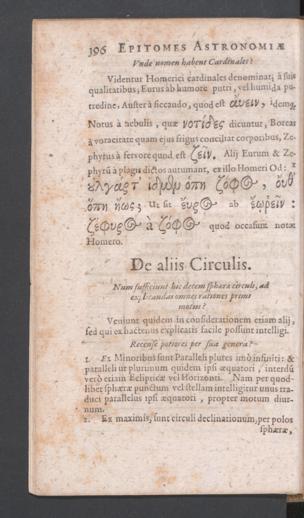 396 EPITOMES ASTRONOMIÆ
Vnde nomen habent Cardinales?
Videntur Homerici cardinales denominati à suis
qualitatibus, Eurus ab humore putri, vel humida pu-
tredine, Auster à siccando, quod est αυειν, idemq;
Notus à nebulis, quæ νοτιδες dicuntur, Boreas
à voracitate quam ejus frigus conciliat corporibus, Ze-
phyrus à fervore quod est ζεῖν. Alij Eurum & Ze-
phyrũ à plagis dictos autumant, ex illo Homeri Od:
ὅπη ζόφος, ουθ᾽
ὅπη ἠως; Ut sit ευρος ab
ζεφυρος à ζόφος quod occasum notat
Homero.
De aliis Circulis.
Num sufficiunt hic decem sphæræ circuli, ad
explicandas omnes rationes primi
motus?
Veniunt quidem in considerationem etiam alij,
sed qui ex hactenus explicatis facile possunt intelligi.
Recense potiores per sua genera?
1. Ex Minoribus sunt Paralleli plures imò infiniti: &
paralleli ut plurimum quidem ipsi æquatori, interdũ
verò etiam Eclipticæ vel Horizonti. Nam per quod-
libet sphæræ punctum vel stellam intelligitur unus tra-
duci parallelus ipsi æquatori, propter motum diur-
num.
2. Ex maximis, sunt circuli declinationum, per polos
sphæræ,